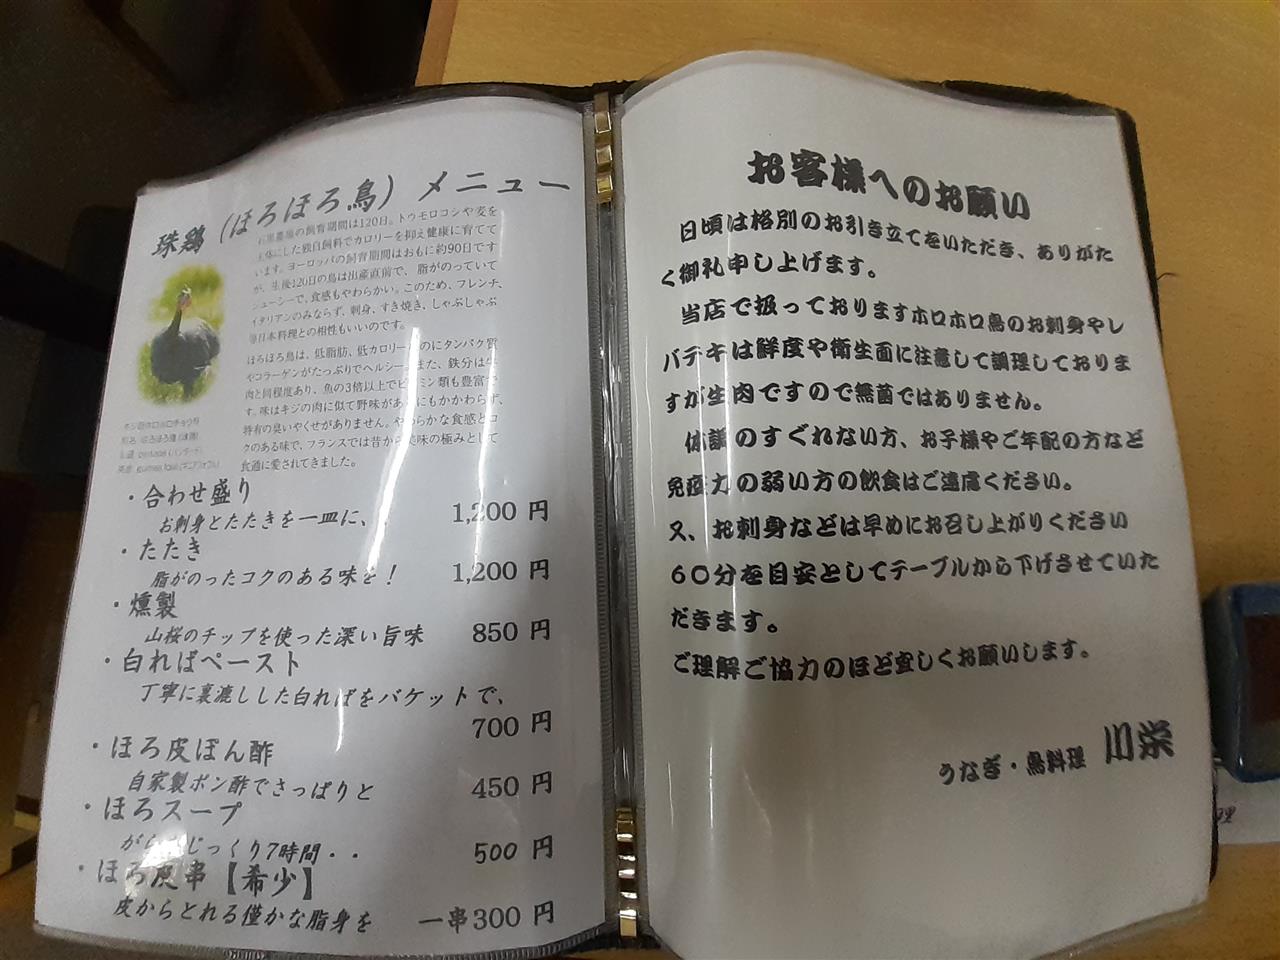 珠鶏 (ほろほろ鳥) メニュー
飼育期間は120日。トウモロコシや麦を
主体にした独自飼料でカロリーを抑え健康に育てて
います。ヨーロッパの飼育期間はおもに約90日です
が、生後120日の鳥は出産直前で、脂がのっていて
ジューシーで、食感もやわらかい。このため、フレンチ、
イタリアンのみならず、刺身、すき焼き、しゃぶしゃぶ
等日本料理との相性もいいのです。
ほろほろ鳥は、低脂肪、低カロリーなのにタンパク質
やコラーゲンがたっぷりでヘルシー。また、鉄分は牛
肉と同程度あり、魚の3倍以上でビタミン類も豊富で
す。味はキジの肉に似て野味があるにもかかわらず、
特有の臭いやくせがありません。やわらかな食感とコ
クのある味で、フランスでは昔から美味の極みとして
食通に愛されてきました。
キジ目ホロホロチョウ科
別名 ほろほろ鶏(珠鶏)
・合わせ盛り
お刺身とたたきを一皿に、、 1,200 円
・たたき
脂がのったコクのある味を! 1,200 円
・燻製
山桜のチップを使った深い旨味 850 円
・白ればペースト
丁寧に裏漉しした白ればをバケットで、
700 円
・ほろ皮ぽん酢
自家製ポン酢でさっぱりと 450 円
・ほろスープ
じっくり7時間・・ 500 円
・ほろ皮串【希少】
皮からとれる僅かな脂身を 一串300 円
お客様へのお願い
日頃は格別のお引き立てをいただき、ありがた
く御礼申し上げます。
当店で扱っておりますホロホロ鳥のお刺身やレ
バテキは鮮度や衛生面に注意して調理しておりま
すが生肉ですので無菌ではありません。
体調のすぐれない方、お子様やご年配の方など
免疫力の弱い方の飲食はご遠慮ください。
又、お刺身などは早めにお召し上がりください
60分を目安としてテーブルから下げさせていた
だきます。
ご理解ご協力のほど宜しくお願いします。
うなぎ・鳥料理 川栄
理